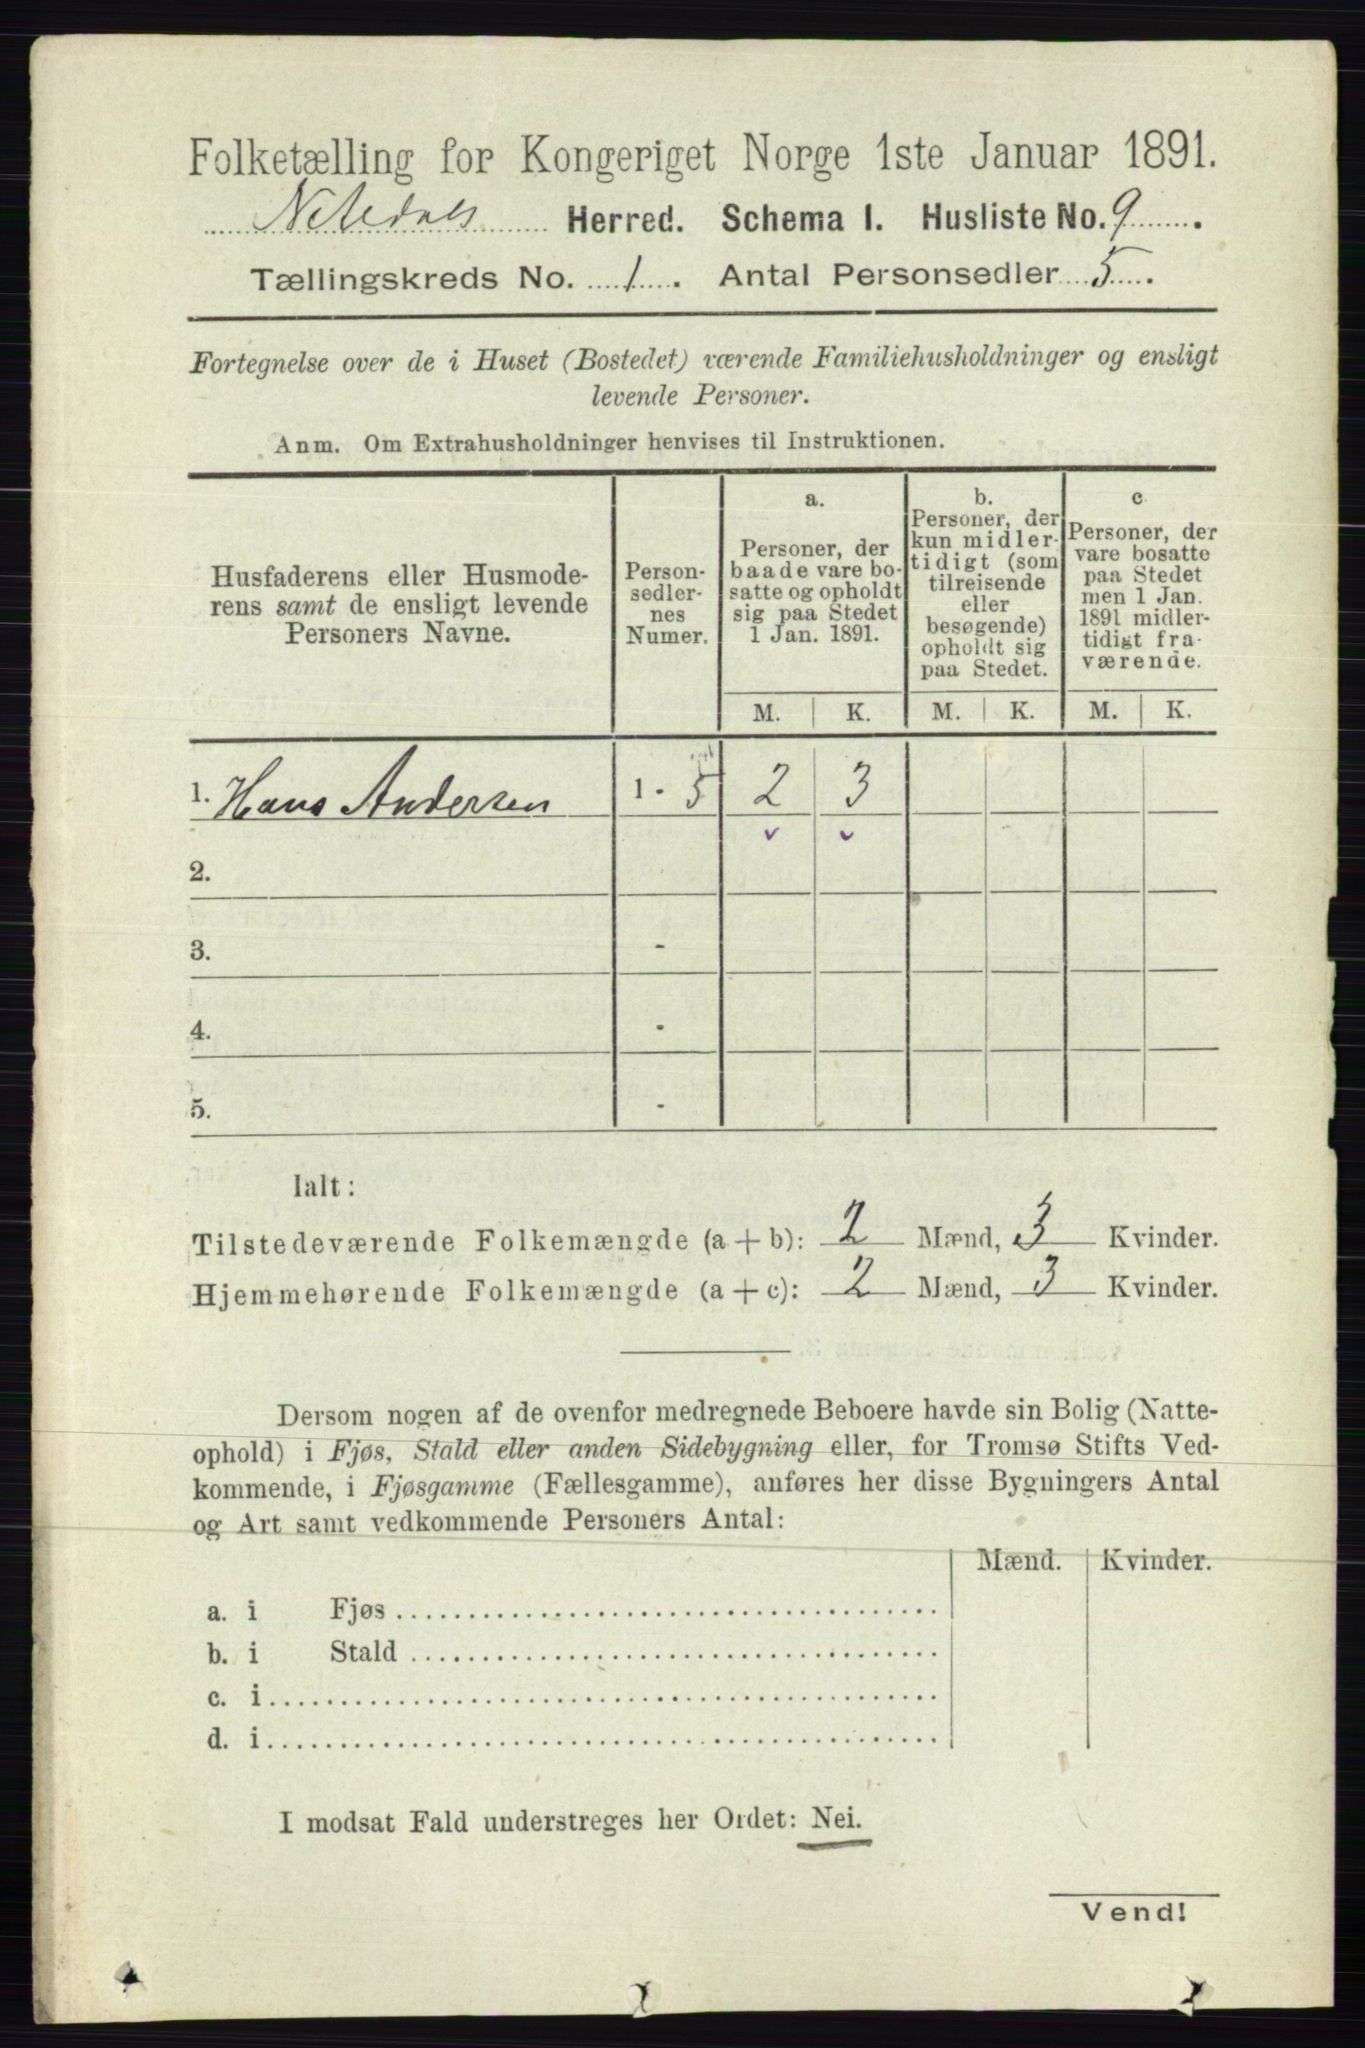 Folketælling for Kongeriget Norge 1ste Januar 1891.
Nitedals Herred. Schema I. Husliste No. 9.
Tællingskreds No. 1. Antal Personsedler 5.
Fortegnelse over de i Huset (Bostedet) værende Familiehusholdninger og ensligt
levende Personer.
Anm. Om Extrahusholdninger henvises til Instruktionen.
Husfaderens eller Husmode-
rens samt de ensligt levende
Personers Navne.
Person-
sedler-
nes
Numer.
a.
Personer, der
baade vare bo-
satte og opholdt
sig paa Stedet
1 Jan. 1891.
b.
Personer, der
kun midler-
tidigt (som
tilreisende
eller
besøgende)
opholdt sig
paa Stedet.
c
Personer, der
vare bosatte
paa Stedet
men 1 Jan.
1891 midler-
tidigt fra-
værende.
M. K. M. K. M. K.
1. Hans Andersen 1 - 5 2 3
2.
3. -
4. -
5. -
Ialt:
Tilstedeværende Folkemængde (a + b): 2 Mænd, 3 Kvinder.
Hjemmehørende Folkemængde (a + c): 2 Mænd, 3 Kvinder.
Dersom nogen af de ovenfor medregnede Beboere havde sin Bolig (Natte-
ophold) i Fjøs, Stald eller anden Sidebygning eller, for Tromsø Stifts Ved-
kommende, i Fjøsgamme (Fællesgamme), anføres her disse Bygningers Antal
og Art samt vedkommende Personers Antal:
Mænd. Kvinder.
a. i Fjøs
b. i Stald
c. i
d. i
I modsat Fald understreges her Ordet: Nei.
Vend!